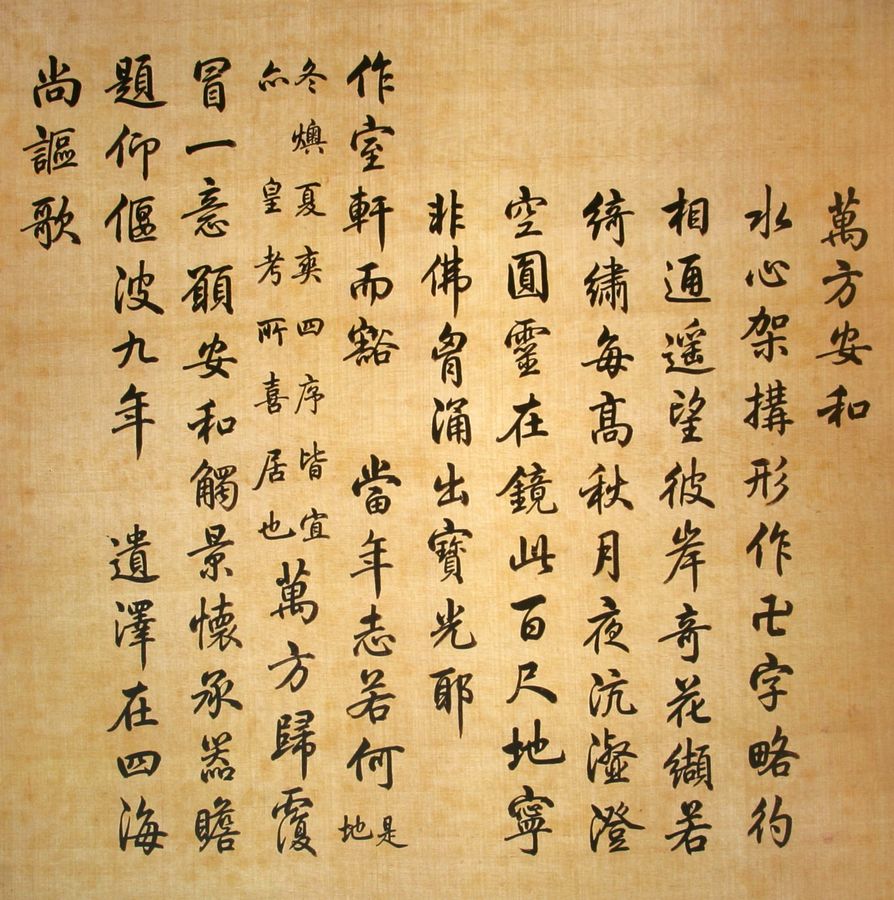 萬方安和
水心架搆形作卍字略彴
相通遥望彼岸奇花纈若
綺繡每髙秋月夜沆瀣澄
空圓靈在鏡此百尺地寧
非佛胷涌出寶光耶
作室軒而豁　當年志若何是地
冬燠夏爽四序皆宜
亦　皇考所喜居也
萬方歸覆
冒一意願安和觸景懷承器瞻
題仰偃波九年　遺澤在四海
尚謳歌